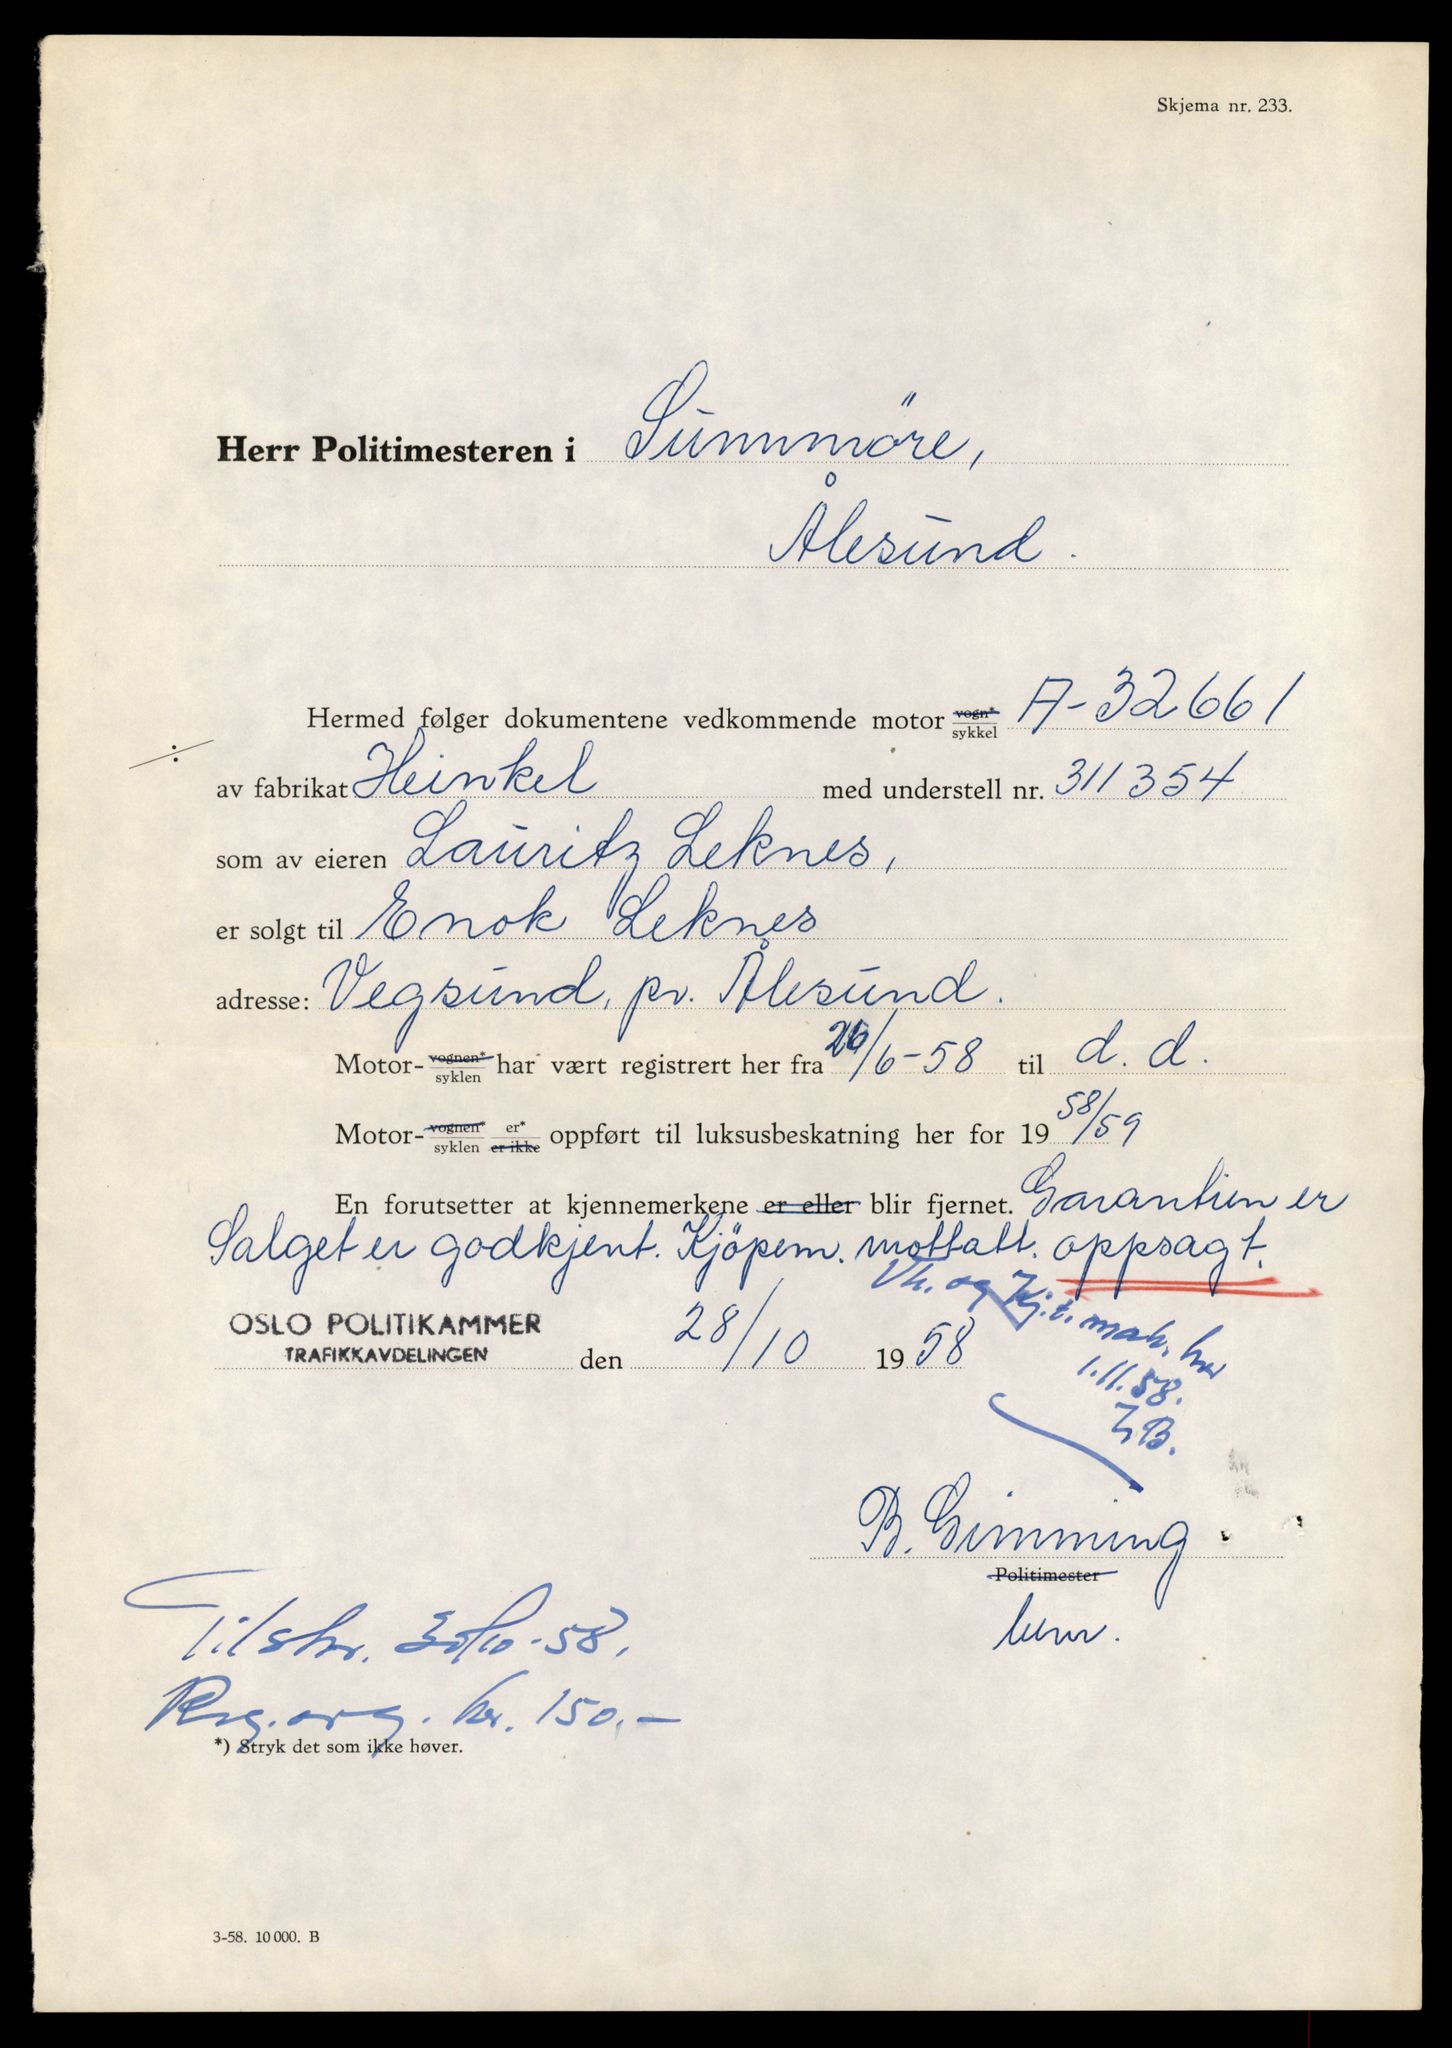 Skjema nr. 233.
Herr Politimesteren i Sunnmöre,
Ålesund.
Hermed følger dokumentene vedkommende motor vogn* sykkel A-32661
÷
av fabrikat Heinkel med understell nr. 311354
som av eieren Lauritz Leknes,
er solgt til Enok Leknes
adresse: Vegsund, pr. Ålesund.
Motor- vognen* syklen har vært registrert her fra 26/6-58 til d. d.
Motor- vognen* syklen er* er ikke oppført til luksusbeskatning her for 1958/59
En forutsetter at kjennemerkene er eller blir fjernet. Garantien er
Salget er godkjent. Kjöpem. mottatt. oppsagt.
Vk. og Kj.t. mak. her
OSLO POLITIKAMMER
TRAFIKKAVDELINGEN den 28/10 1958
1.11.58.
B. Gimming
Politimester
Tilskr. 30/10-58.
Reg.avg. kr. 150.-
*) Stryk det som ikke høver.
3-58. 10 000. B